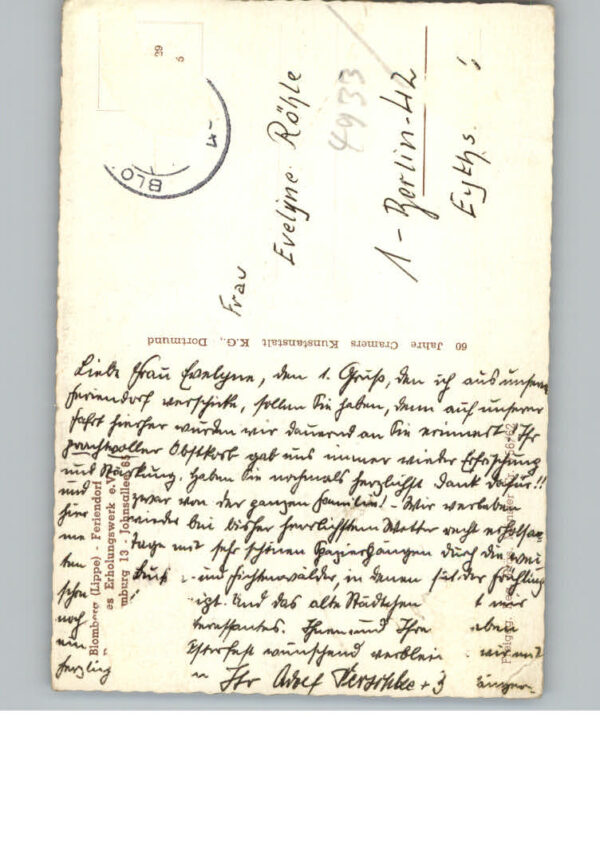 29
5
BLO
Frau
Evelyne Röhle
4933
1-Berlin-42
Eyths
60 Jahre Cramers Kunstanstalt K.G., Dortmund
Liebe Frau Evelyne, den 1. Gruß, den ich aus unserem
Feriendorf verschicke, sollen Sie haben, denn auf unserer
Fahrt hierher wurden wir dauernd an Sie erinnert. Ihr
prachtvoller Obstkorb gab uns immer wieder Erfrischung
und Stärkung. Haben Sie nochmals herzlichst Dank dafür!!
und zwar von der ganzen Familie! - Wir verleben
hier wieder bei bisher herrlichstem Wetter recht erholsa
me Tage mit sehr schönen Spaziergängen durch die wei
ten Buch - und Fichtenwälder, in denen der Frühling
schon Und das alte Städtchen mir
noch teressantes. Ihnen und Ihre eben
ein sterfest wünschend verblei wir mit
herzlich n Ihr Adolf + 3
Blomberg (Lippe) - Feriendorf
es Erholungswerk e.V.
mburg 13 · Johnsallee